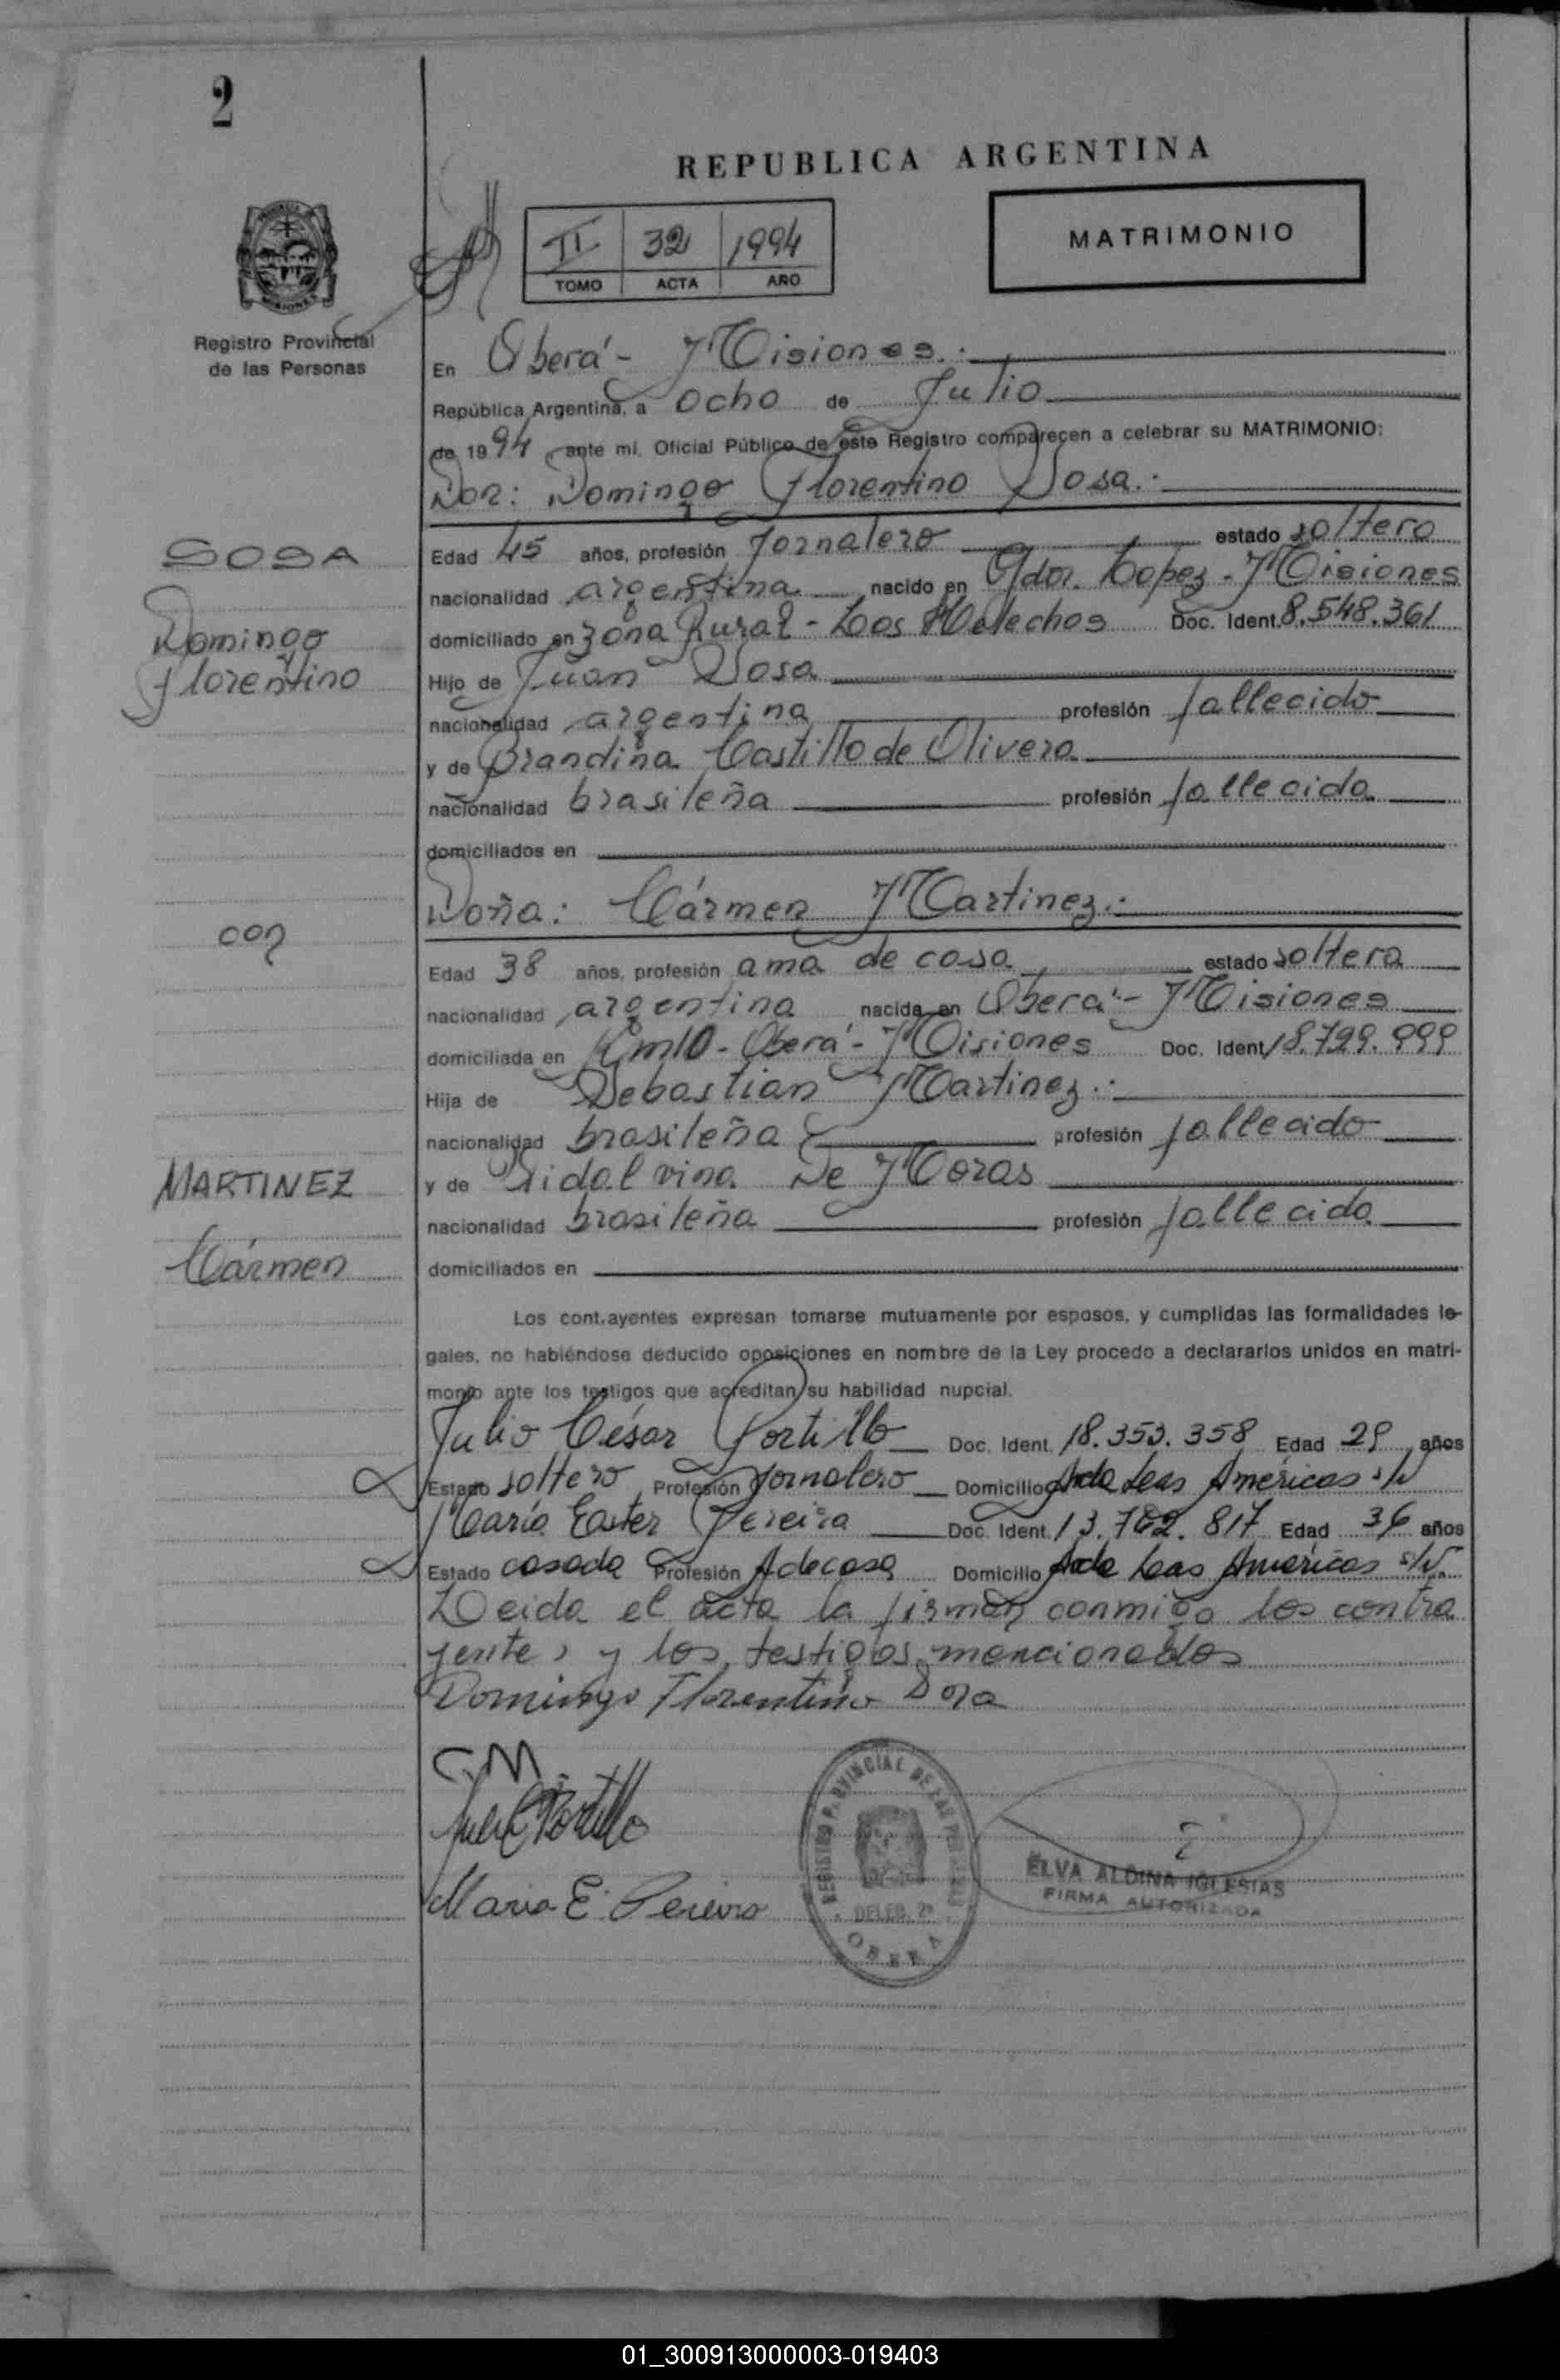 2
REPUBLICA ARGENTINA
II 32 1994
TOMO ACTA AÑO
MATRIMONIO
Registro Provincial
de las Personas
En Oberá - Misiones.:
República Argentina, a ocho de Julio
de 1994 ante mi, Oficial Público de este Registro comparecen a celebrar su MATRIMONIO:
Don: Domingo Florentino Sosa.:
SOSA
Domingo
Florentino
Edad 45 años, profesión Jornalero estado soltero
nacionalidad argentina nacido en Gdor. Lopez - Misiones
domiciliado en zona Rural - Los Helechos Doc. Ident. 8.548.361
Hijo de Juan Sosa
nacionalidad argentina profesión fallecido
y de Brandina Castillo de Olivera
nacionalidad brasileña profesión fallecida
domiciliados en
Doña: Cármen Martinez.:
con
Edad 38 años, profesión ama de casa estado soltera
nacionalidad argentina nacida en Oberá - Misiones
domiciliada en Km10 - Oberá - Misiones Doc. Ident. 18.799.999
Hija de Sebastian Martinez.:
nacionalidad brasileña profesión fallecido
MARTINEZ
Cármen
y de Sidalvina De Moras
nacionalidad brasileña profesión fallecida
domiciliados en
Los cont.ayentes expresan tomarse mutuamente por esposos, y cumplidas las formalidades le-
gales, no habiéndose deducido oposiciones en nombre de la Ley procedo a declararlos unidos en matri-
monio ante los testigos que acreditan su habilidad nupcial.
Julio César Portillo Doc. Ident. 18.353.358 Edad 29 años
Estado soltero Profesión Jornalero Domicilio Avda Las Américas s/N
María Ester Pereira Doc. Ident. 13.762.817 Edad 36 años
Estado casada Profesión A de casa Domicilio Avda Las Américas s/N.
Leida el acta la firman conmigo los contra
yentes y los testigos mencionados
Domingo Florentino Sosa
C.M.
Julio C Portillo
Maria E. Pereira
REGISTRO PROVINCIAL DE LAS PERSONAS
DELEG. 2ª
OBERA
ELVA ALDINA IGLESIAS
FIRMA AUTORIZADA
01_300913000003-019403